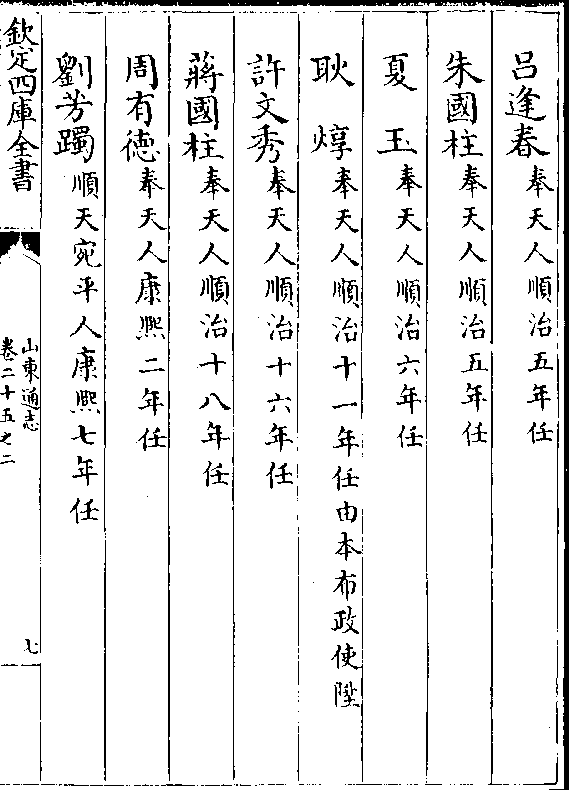 呂逢春奉天人順治五年任
朱國柱奉天人順治五年任
夏玉奉天人順治六年任
耿焞奉天人順治十一年任由本布政使陞
許文秀奉天人順治十六年任
蔣國柱奉天人順治十八年任
周有德奉天人康熙二年任
劉芳躅順天宛平人康熙七年任
欽定四庫全書
山東通志
卷二十五之二
七